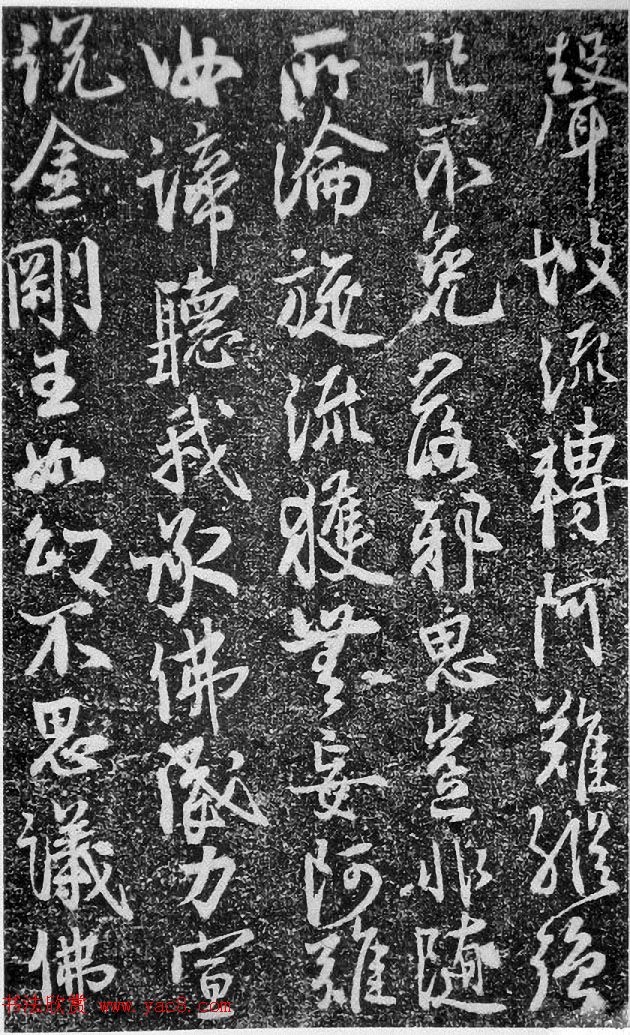 聲故流轉阿難縱強
記不免落邪思豈非隨
所淪旋流獲無妄阿難
汝諦聽我承佛威力宣
説金剛王如幻不思議佛
书法欣赏 www.yac8.com